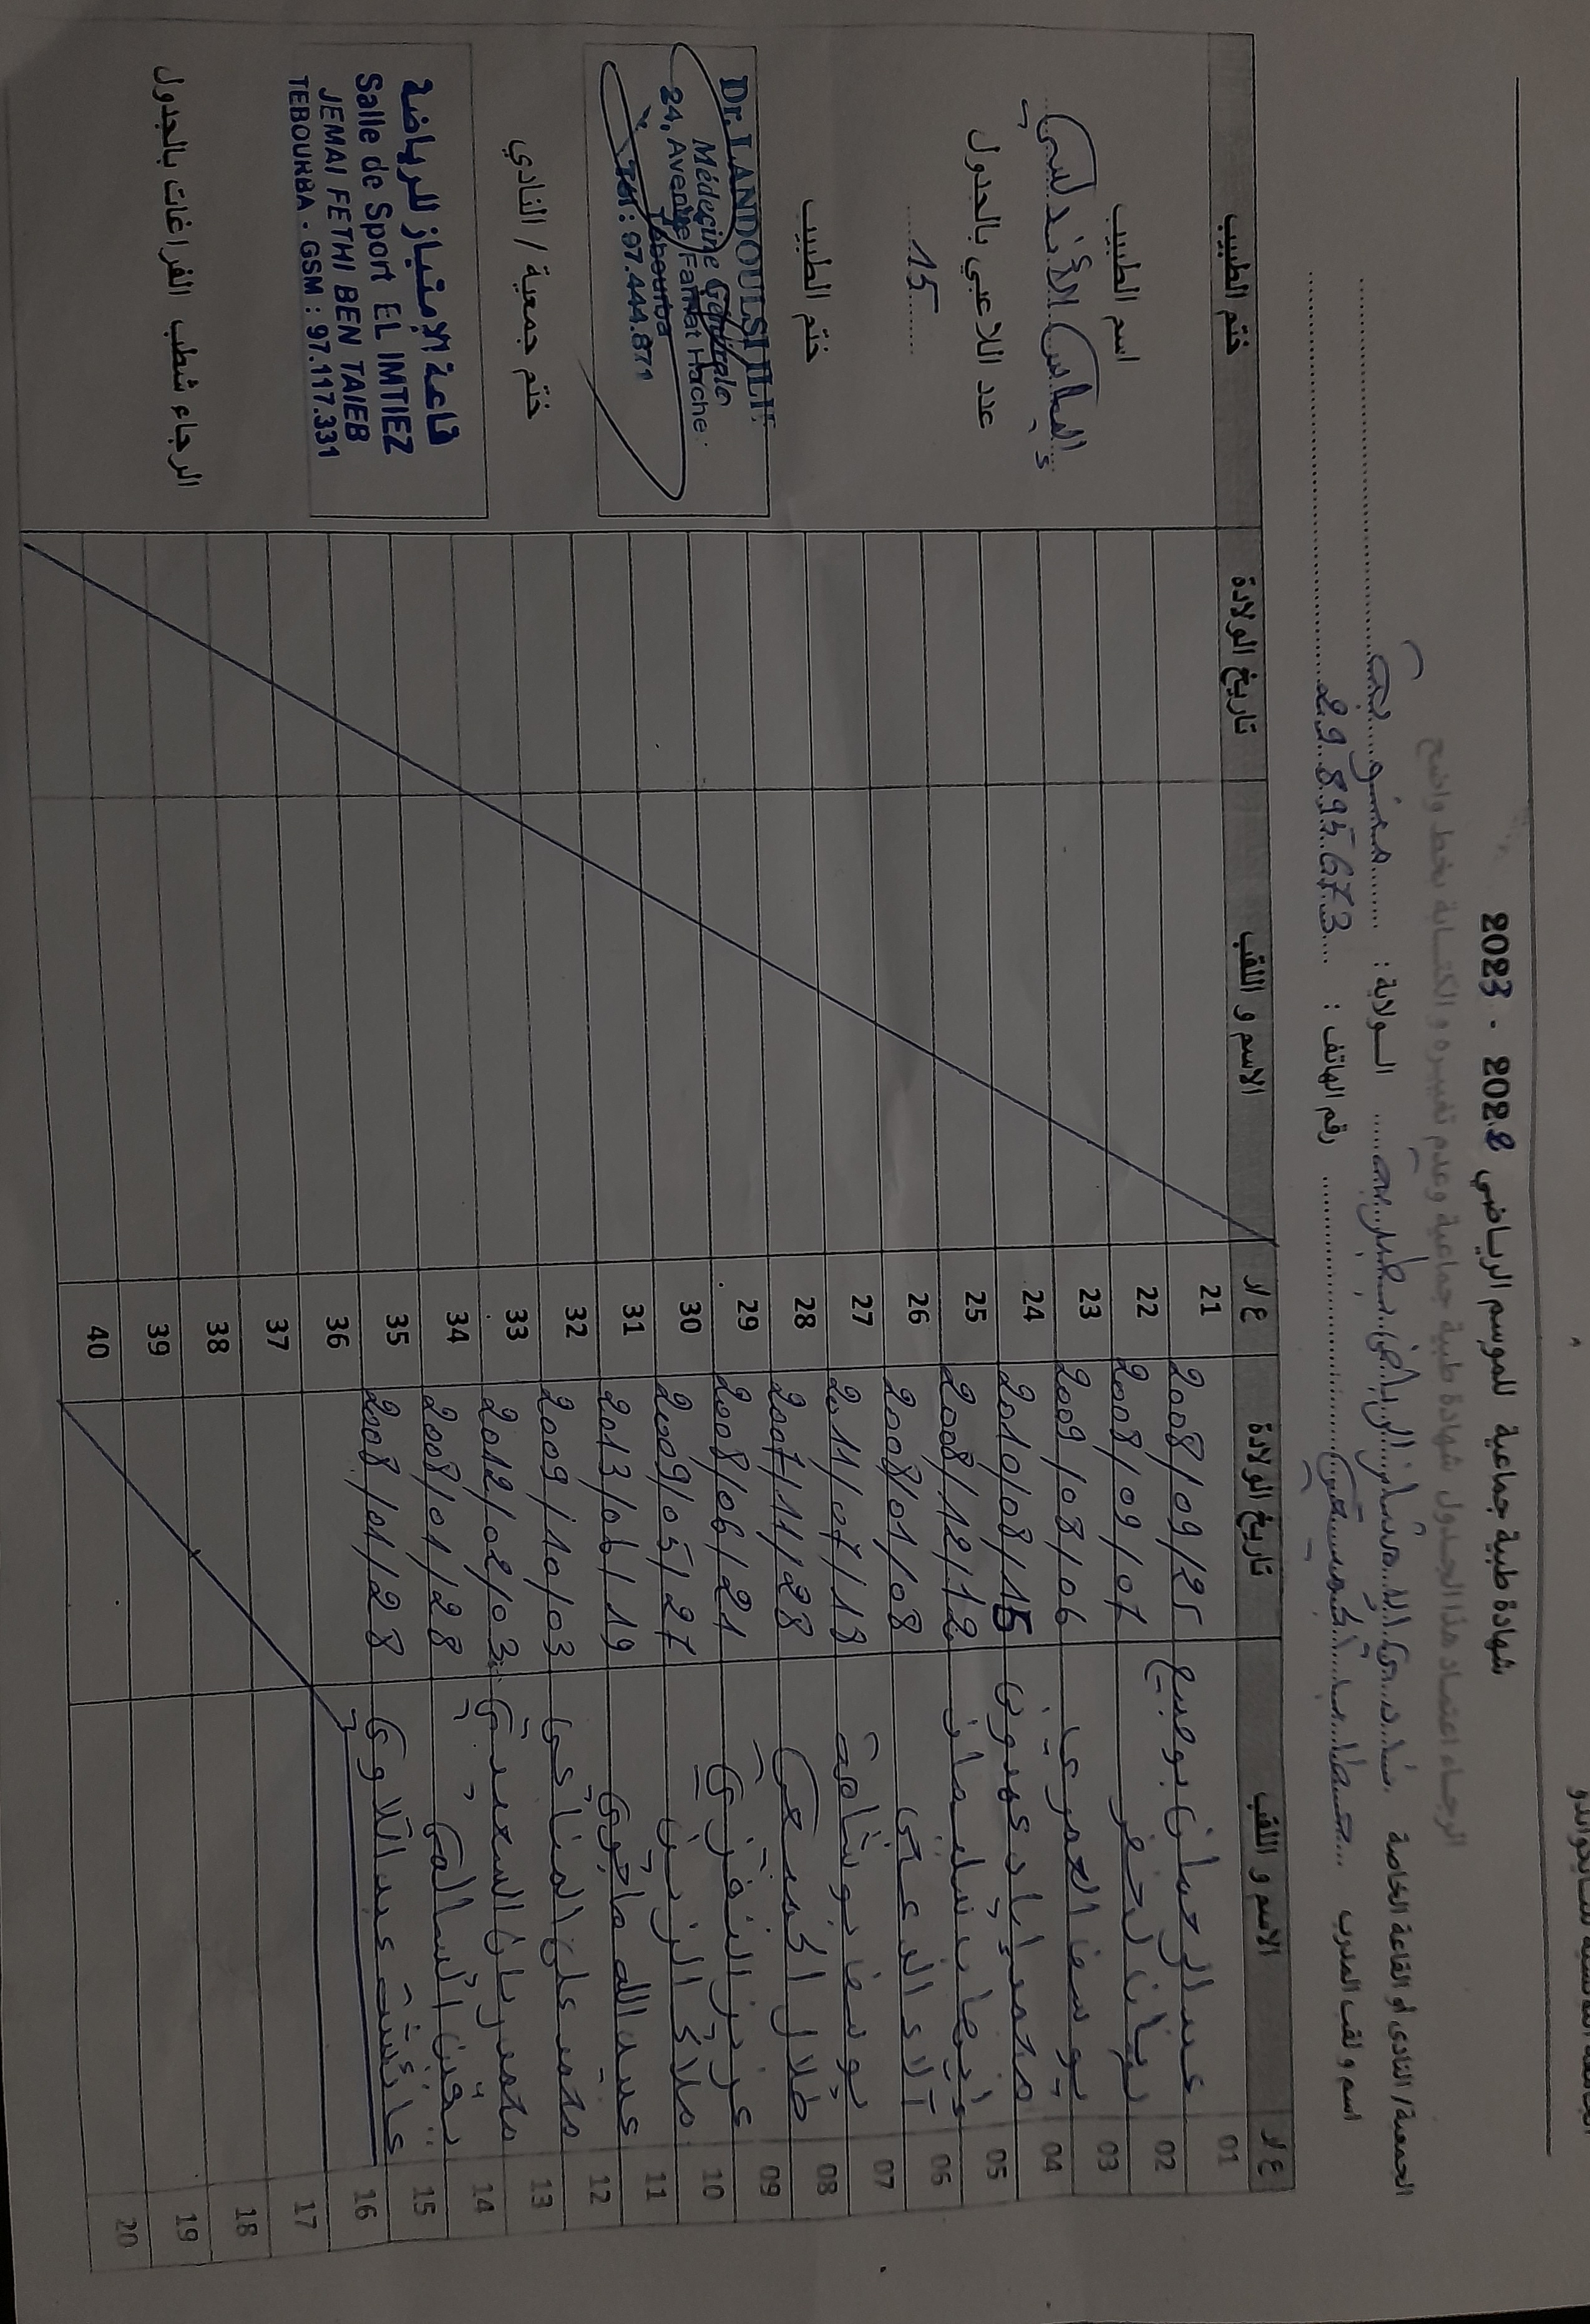 شهادة طبية جماعية للموسم الرياضي 2022 - 2023
الرجاء اعتماد هذا الجدول شهادة طبية جماعية وعدم تغييره و الكتابة بخط واضح
الجمعية / النادي أو القاعة الخاصة نادي الامتياز الرياضي بطبربة الولاية : منوبة
اسم و لقب المدرب رقم الهاتف : 29 895 673
ع/ر الاسم و اللقب تاريخ الولادة ع/ر الاسم و اللقب تاريخ الولادة ختم الطبيب
01 عبد الرحمان بوضبع 2008/09/25 21
02 ريان لخضر 2008/09/07 22
03 يوسف العمري 2009/08/06 23
04 محمد إياد عمدون 2010/08/15 24
05 2008/12/12 25
06 آلاء الدعجي 2008/01/08 26
07 يوسف بوشامة 2011/07/18 27
08 طلال الكسيعي 2007/11/28 28
09 عزيز النفزي 2008/06/21 29
10 ملاك الزين 2009/05/27 30
11 عبد الله ماجوي 2013/06/19 31
12 محمد علي المناعي 2009/10/03 32
13 محمد ريان السعيدي 2012/02/03 33
14 يقين السالمي 2008/01/28 34
15 عائشة عبد اللاوي 2008/01/28 35
16 36
17 37
18 38
19 39
20 40
اسم الطبيب
إلياس الأندلسي
عدد اللاعبي بالجدول
15
ختم الطبيب
Dr. LANDOULSI
Médecine Générale
24, Avenue Farhat Hached
Tebourba
Tél : 97.444.871
ختم جمعية / النادي
قاعة الإمتياز للرياضة
Salle de Sport EL IMTIEZ
JEMAI FETHI BEN TAIEB
TEBOURBA - GSM : 97.117.331
الرجاء شطب الفراغات بالجدول